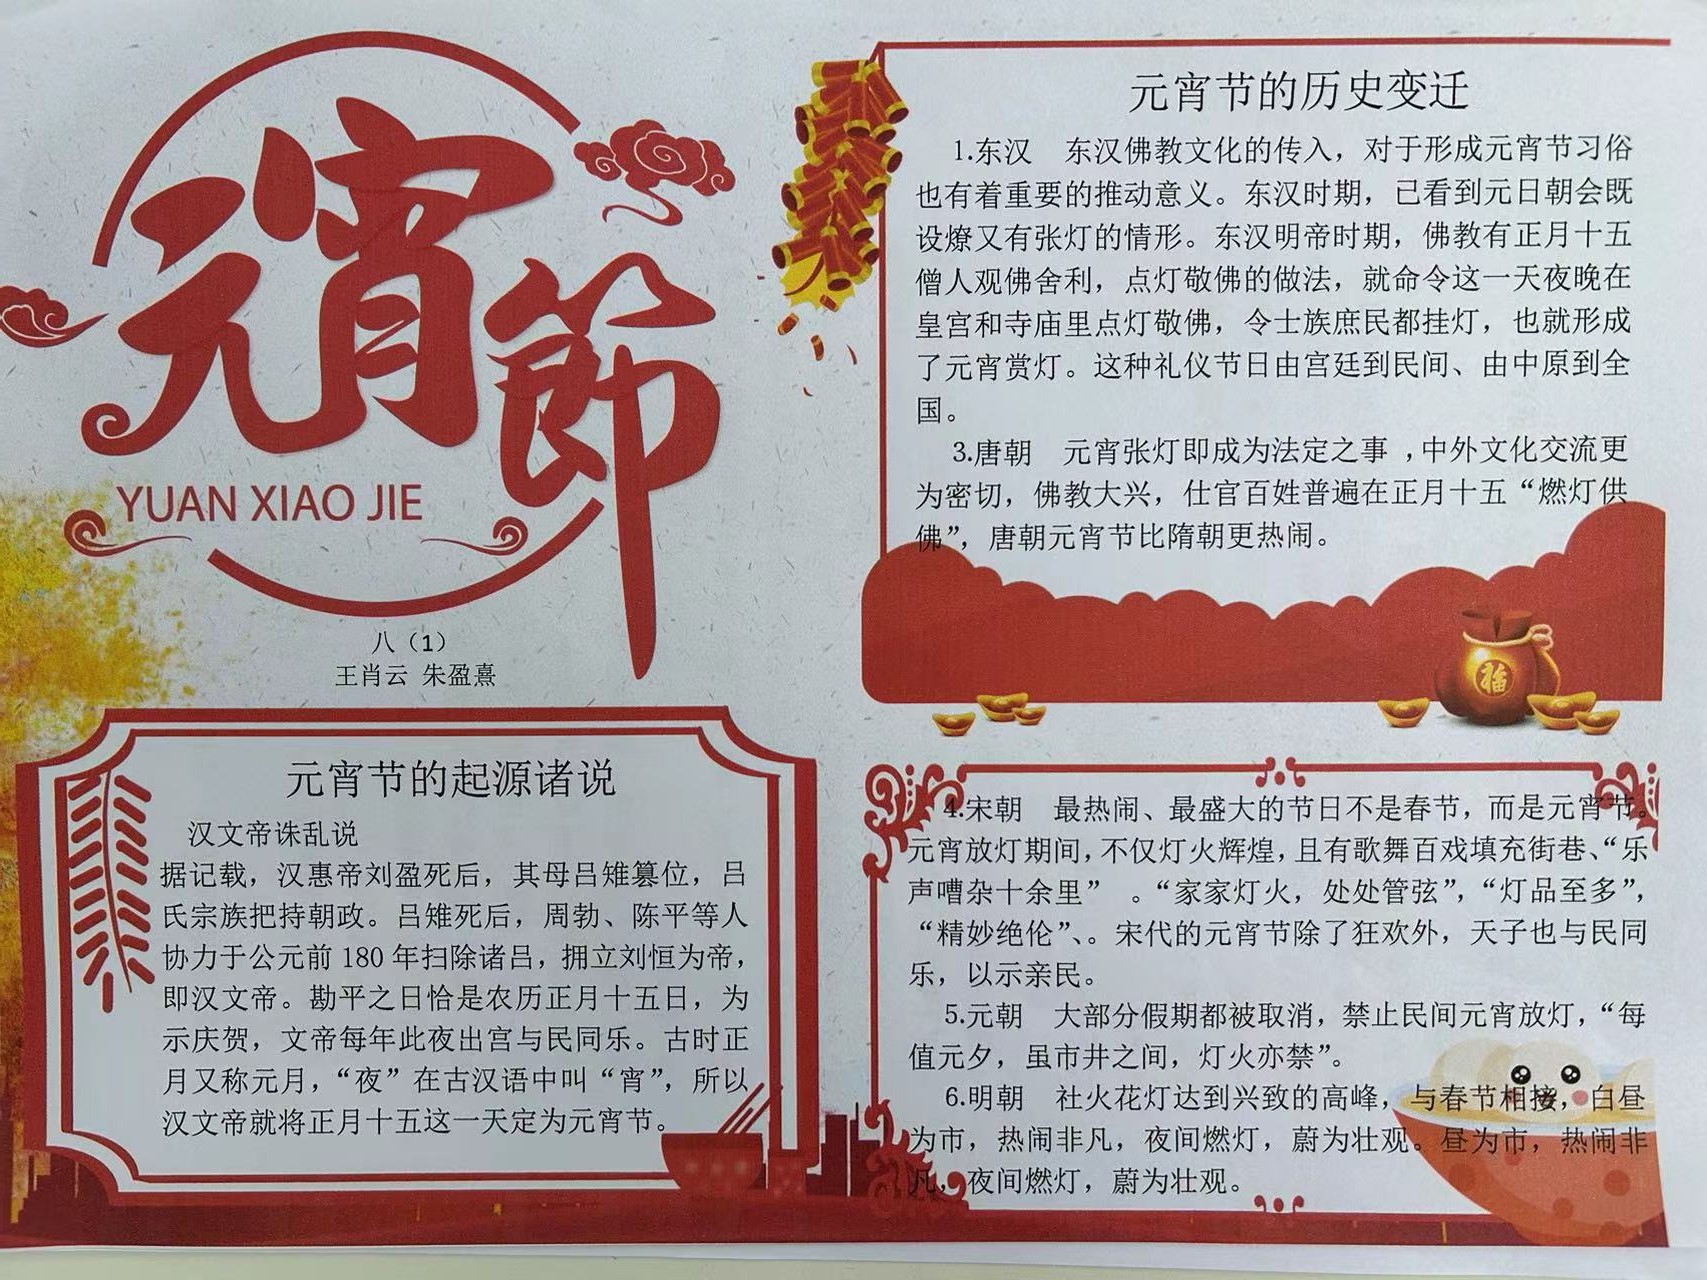 元宵節
YUAN XIAO JIE
八（1）
王肖云 朱盈熹
元宵节的起源诸说
汉文帝诛乱说
据记载，汉惠帝刘盈死后，其母吕雉篡位，吕
氏宗族把持朝政。吕雉死后，周勃、陈平等人
协力于公元前 180 年扫除诸吕，拥立刘恒为帝，
即汉文帝。勘平之日恰是农历正月十五日，为
示庆贺，文帝每年此夜出宫与民同乐。古时正
月又称元月，“夜”在古汉语中叫“宵”，所以
汉文帝就将正月十五这一天定为元宵节。
元宵节的历史变迁
1.东汉 东汉佛教文化的传入，对于形成元宵节习俗
也有着重要的推动意义。东汉时期，已看到元日朝会既
设燎又有张灯的情形。东汉明帝时期，佛教有正月十五
僧人观佛舍利，点灯敬佛的做法，就命令这一天夜晚在
皇宫和寺庙里点灯敬佛，令士族庶民都挂灯，也就形成
了元宵赏灯。这种礼仪节日由宫廷到民间、由中原到全
国。
3.唐朝 元宵张灯即成为法定之事 ，中外文化交流更
为密切，佛教大兴，仕官百姓普遍在正月十五“燃灯供
佛”，唐朝元宵节比隋朝更热闹。
福
4.宋朝 最热闹、最盛大的节日不是春节，而是元宵节。
元宵放灯期间，不仅灯火辉煌，且有歌舞百戏填充街巷、“乐
声嘈杂十余里” 。“家家灯火，处处管弦”，“灯品至多”，
“精妙绝伦”、。宋代的元宵节除了狂欢外，天子也与民同
乐，以示亲民。
5.元朝 大部分假期都被取消，禁止民间元宵放灯，“每
值元夕，虽市井之间，灯火亦禁”。
6.明朝 社火花灯达到兴致的高峰，与春节相接，白昼
为市，热闹非凡，夜间燃灯，蔚为壮观。昼为市，热闹非
凡，夜间燃灯，蔚为壮观。